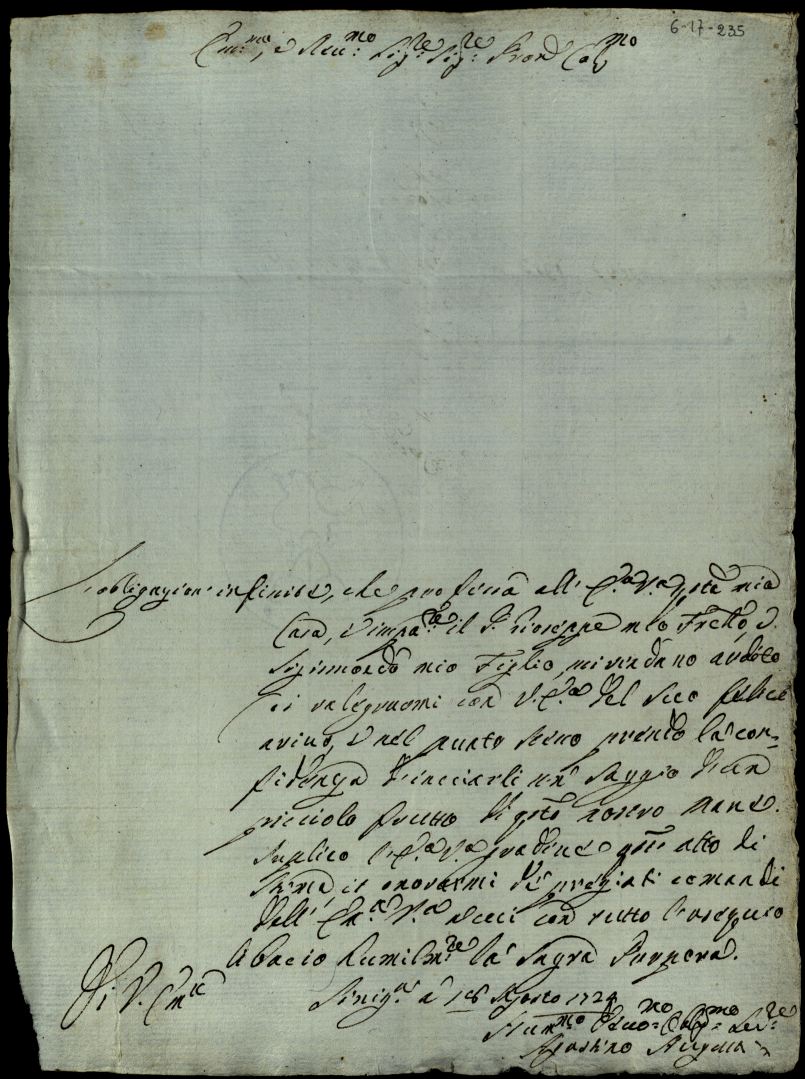 6-17-235
Em:mo, e Reu:mo Sig:re Sig:re Pron Col:mo
L'obligazioni infinite, che professa all' E.a V.a qsta mia
Casa, e il S. Gioseppe mio Fratello, e
Sigismondo mio Figlio, mi rendano ardito
di rasegnarmi con V.E.a del suo felice
arivo, e nel punto stesso prendo la con-
fidenza d'inviarli un saggio d'un
picciolo frutto di qsto nostro mare.
Suplico l'E.a V.a gradire qsto atto di
stima, et onorarmi de pregiati comandi
dell' Em.a V.a a cui con tutto l'osequio
bacio humilm:te la Sagra Porpora.
Di V. Em.a
Sinig.a a 18 Agosto 1724
Hum:mo Deuo:mo Oblig:mo Ser:re
Agostino